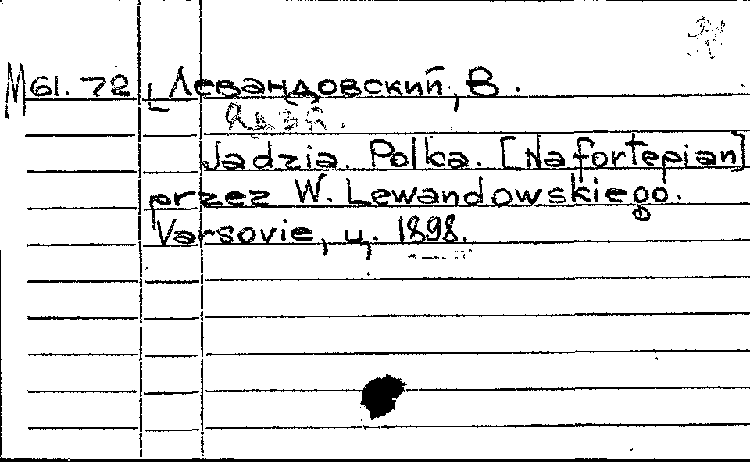 М 61.72 Левандовский, В.
Jadzia. Polka. [Na fortepian]
przez W. Lewandowskiego.
Varsovie, ц. 1898.